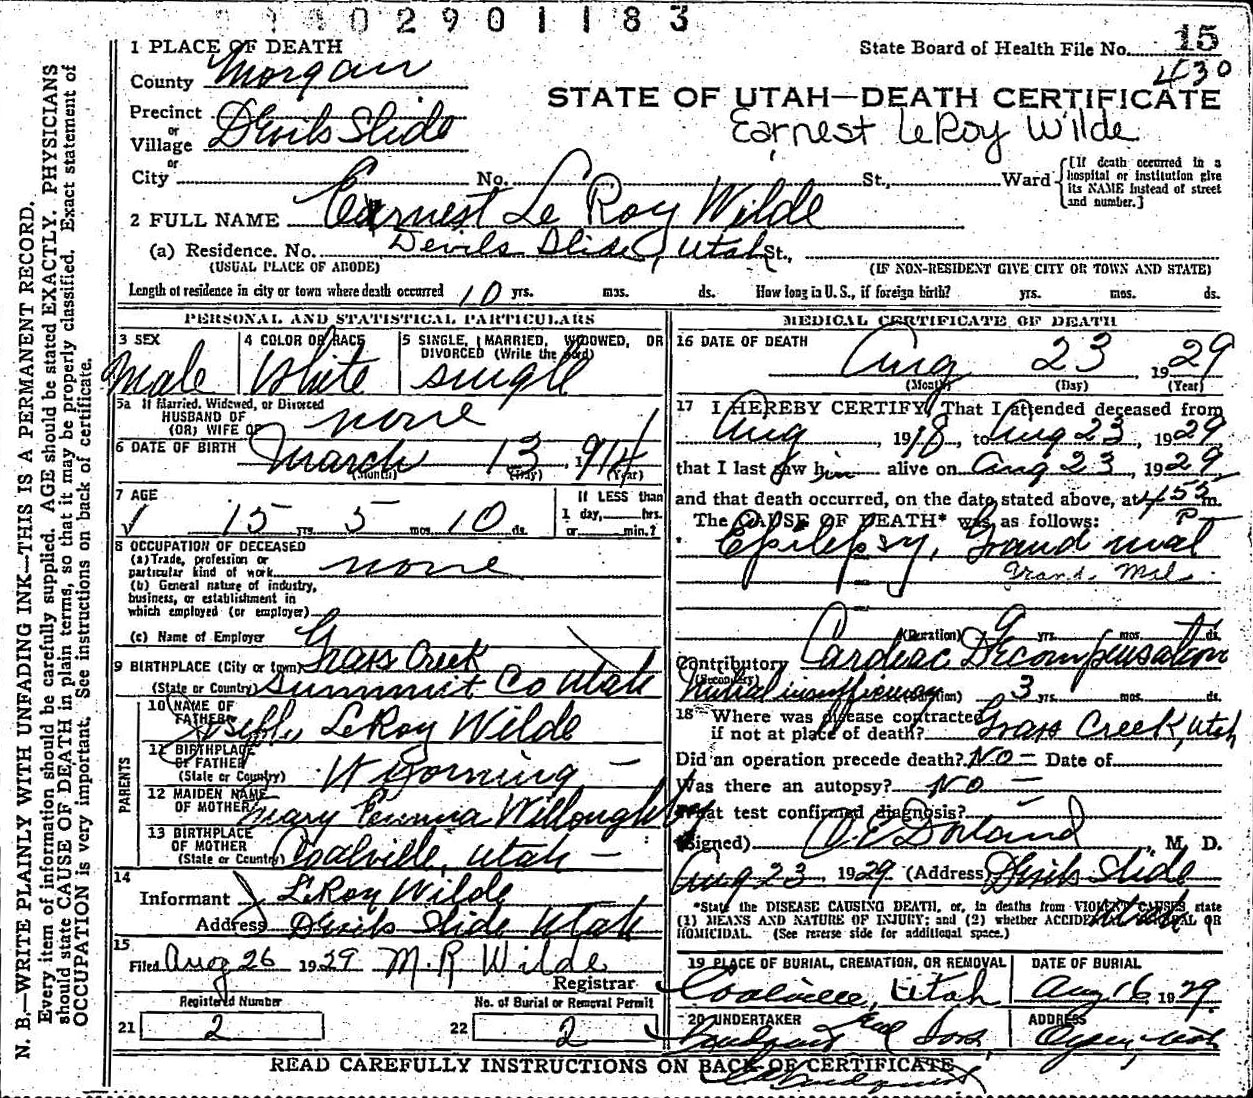 02901183
1 PLACE OF DEATH
State Board of Health File No. 15
430
County Morgan
STATE OF UTAH—DEATH CERTIFICATE
Earnest LeRoy Wilde
Precinct
or
Village Devils Slide
or
City No. St., Ward
[If death occurred in a hospital or institution give its NAME instead of street and number.]
2 FULL NAME Earnest Le Roy Wilde
(a) Residence. No. Devils Slide, Utah St.,
(USUAL PLACE OF ABODE) (IF NON-RESIDENT GIVE CITY OR TOWN AND STATE)
Length of residence in city or town where death occurred 10 yrs. mos. ds. How long in U. S., if foreign birth? yrs. mos. ds.
PERSONAL AND STATISTICAL PARTICULARS
3 SEX Male
4 COLOR OR RACE White
5 SINGLE, MARRIED, WIDOWED, OR DIVORCED (Write the word) single
5a If Married, Widowed, or Divorced
HUSBAND OF
(OR) WIFE OF none
6 DATE OF BIRTH March 13 1914
(Month) (Day) (Year)
7 AGE 15 yrs. 5 mos. 10 ds.
If LESS than 1 day, hrs. or min.?
8 OCCUPATION OF DECEASED
(a) Trade, profession or particular kind of work none
(b) General nature of industry, business, or establishment in which employed (or employer)
(c) Name of Employer
9 BIRTHPLACE (City or town) Grass Creek
(State or Country) Summit Co Utah
PARENTS
10 NAME OF FATHER LeRoy Wilde
11 BIRTHPLACE OF FATHER
(State or Country) Wyoming —
12 MAIDEN NAME OF MOTHER Mary Willoughby
13 BIRTHPLACE OF MOTHER
(State or Country) Coalville, Utah —
14
Informant LeRoy Wilde
Address Devils Slide Utah
15
Filed Aug 26 1929 M. R Wilde
Registrar
Registered Number No. of Burial or Removal Permit
21 2 22 2
MEDICAL CERTIFICATE OF DEATH
16 DATE OF DEATH Aug 23 1929
(Month) (Day) (Year)
17 I HEREBY CERTIFY, That I attended deceased from
Aug, 1918, to Aug 23, 1929
that I last saw him alive on Aug 23, 1929
and that death occurred, on the date stated above, at 455 P m.
The CAUSE OF DEATH* was as follows:
Epilepsy, Grand mal
Grand Mal
(Duration) 9 yrs. mos. ds.
Contributory Cardiac Decompensation
(Secondary)
Mitral insufficiency (Duration) 3 yrs. mos. ds.
18 Where was disease contracted
if not at place of death? Grass Creek, Utah
Did an operation precede death? No — Date of
Was there an autopsy? No —
What test confirmed diagnosis? —
(Signed) Dorland, M. D.
Aug 23 1929 (Address) Devils Slide
*State the DISEASE CAUSING DEATH, or, in deaths from VIOLENT CAUSES state
(1) MEANS AND NATURE OF INJURY; and (2) whether ACCIDENTAL, SUICIDAL OR
HOMICIDAL. (See reverse side for additional space.)
19 PLACE OF BURIAL, CREMATION, OR REMOVAL Coalville, Utah
DATE OF BURIAL Aug 16 1929
20 UNDERTAKER and Sons,
ADDRESS Ogden, Utah
READ CAREFULLY INSTRUCTIONS ON BACK OF CERTIFICATE
N. B.—WRITE PLAINLY WITH UNFADING INK—THIS IS A PERMANENT RECORD.
Every item of information should be carefully supplied. AGE should be stated EXACTLY. PHYSICIANS
should state CAUSE OF DEATH in plain terms, so that it may be properly classified. Exact statement of
OCCUPATION is very important. See instructions on back of certificate.